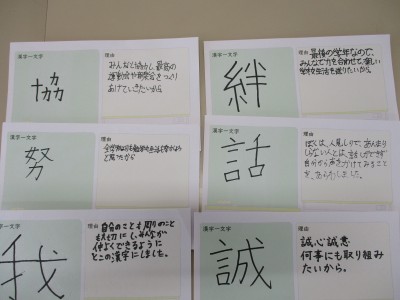 漢字一文字
協
理由
みんなと協力し、最高の
運動会や音楽会をつくり
あげていきたいから。
漢字一文字
絆
理由
最後の学年なので、
みんなで力を合わせて、楽しい
学校生活を送りたいから。
漢字一文字
努
理由
と思ったから
漢字一文字
話
理由
ぼくは、人見しりで、あんまり
しらない人とは、話しができず
自分から声をかけてみることを
あらわしました。
漢字一文字
我
理由
自分のことも周りのこと
も大切にし、みんなが
仲よくできるように
とこの漢字にしました。
漢字一文字
誠
理由
誠心誠意
何事にも取り組み
たいから。